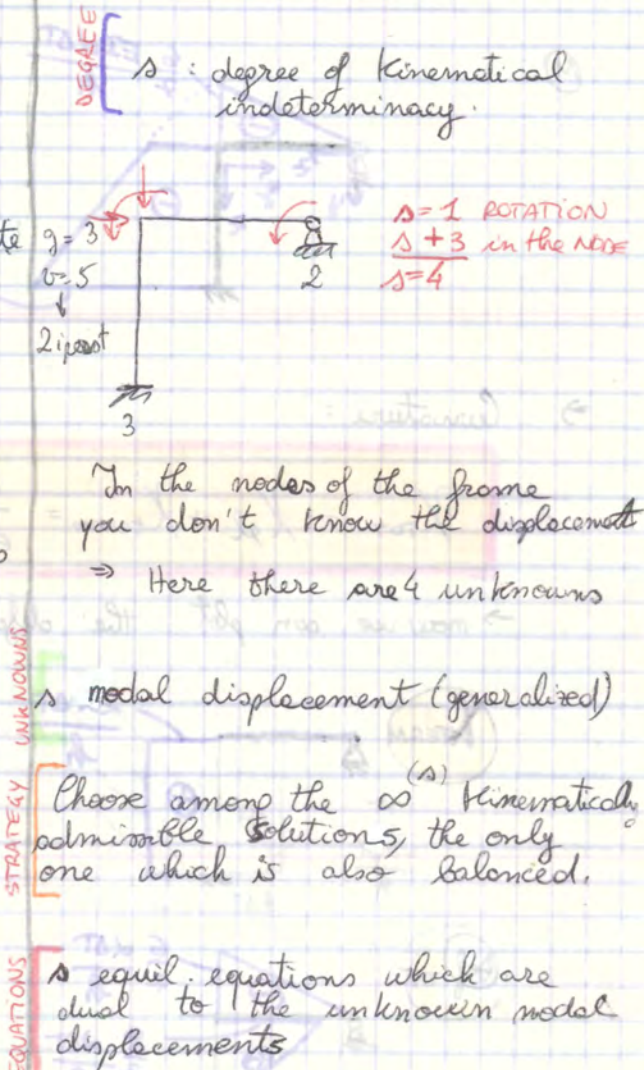 DEGREE
s : degree of kinematical
indeterminacy.
g = 3
v = 5
2 ipost
3
2
s = 1 ROTATION
s + 3 in the NODE
s = 4
In the nodes of the frame
you don't know the displacement
⇒ Here there are 4 unknowns
UNKNOWNS
s nodal displacement (generalized)
STRATEGY
Choose among the ∞^(s) kinematically
admissible solutions, the only
one which is also balanced.
EQUATIONS
s equil. equations which are
dual to the unknown nodal
displacements